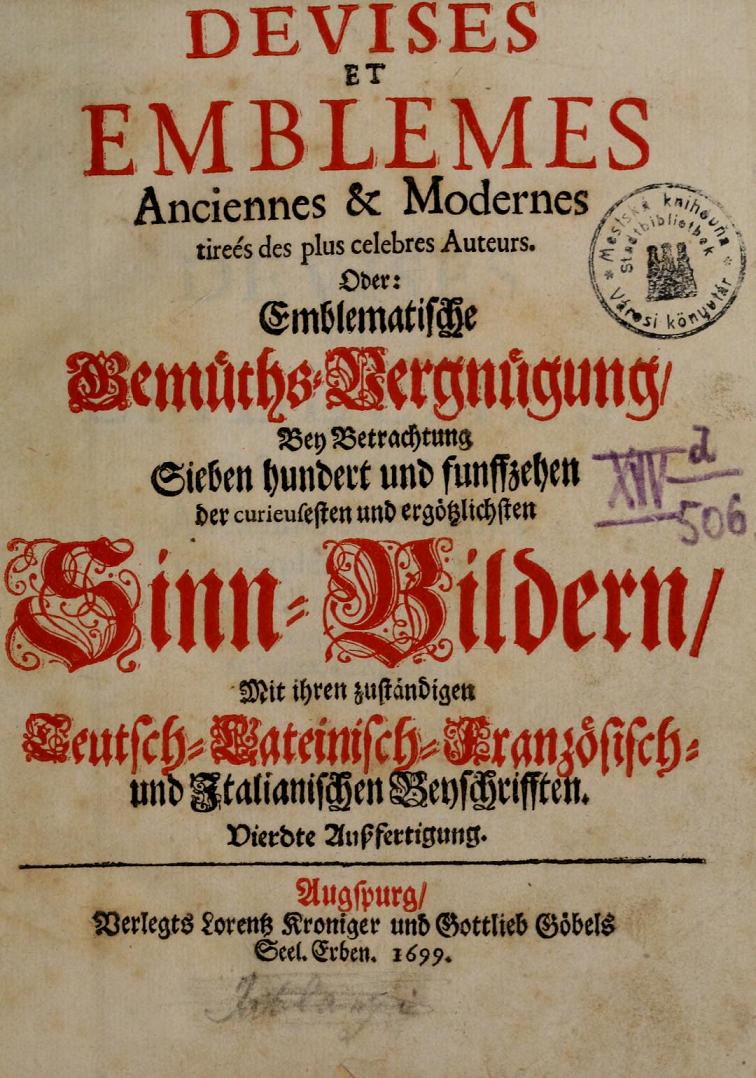 DEVISES
ET
EMBLEMES
Anciennes & Modernes
tireés des plus celebres Auteurs.
Oder:
Emblematische
Gemüths-Vergnügung/
Bey Betrachtung
Sieben hundert und funffzehen
der curieusesten und ergötzlichsten
Sinn-Bildern/
Mit ihren zuständigen
Teutsch-Lateinisch-Französisch-
und Italianischen Beyschrifften.
Vierdte Außfertigung.
Augspurg/
Verlegts Lorentz Kroniger und Gottlieb Göbels
Seel. Erben. 1699.
* Mestská knihovňa *
Stadtbibliothek
Városi könyvtár
XIV d
506